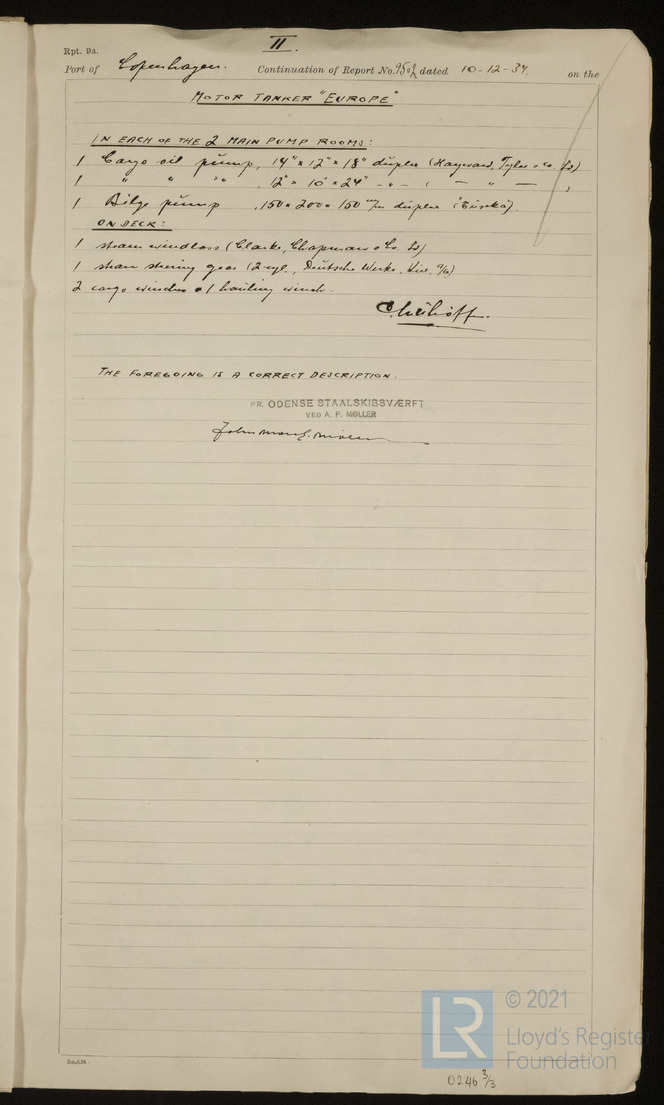 II.
Rpt. 9a.
Port of Copenhagen. Continuation of Report No. 9502 dated 10-12-37. on the
MOTOR TANKER "EUROPE"
IN EACH OF THE 2 MAIN PUMP ROOMS:
1 Cargo oil pump, 14" x 12" x 18" duplex (Hayward, Tyler & Co. Ld)
1 " " " , 12" x 10" x 24" - " - ( — " — )
1 Bilge pump , 150 x 200 x 150 m/m duplex (Eureka).
ON DECK:
1 steam windlass (Clarke, Chapman & Co. Ld)
1 steam steering gear (2-cyl., Deutsche Werke, Kiel A/G)
2 cargo winches & 1 hauling winch.
THE FOREGOING IS A CORRECT DESCRIPTION.
PR. ODENSE STAALSKIBSVÆRFT
VED A. P. MØLLER
© 2021
LR
Lloyd's Register
Foundation
0246 3/3